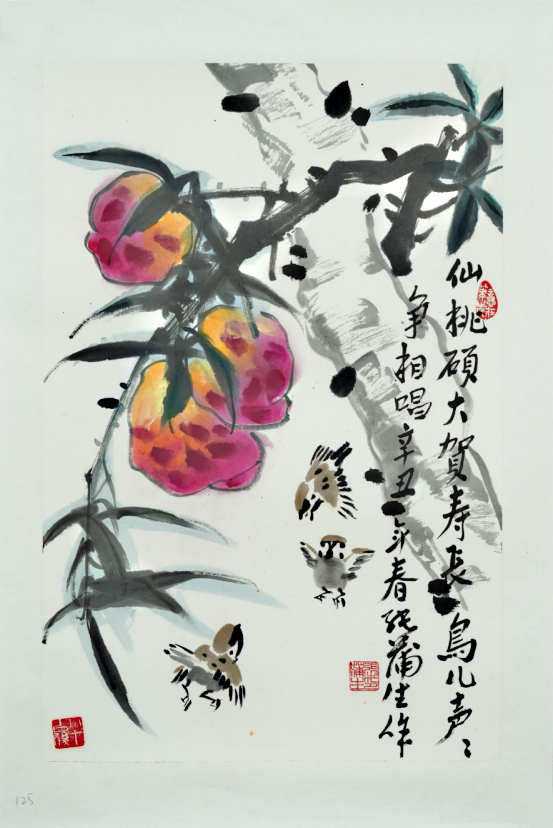 仙桃硕大贺寿长鸟儿声〻
争相唱辛丑年春张蒲生作
125